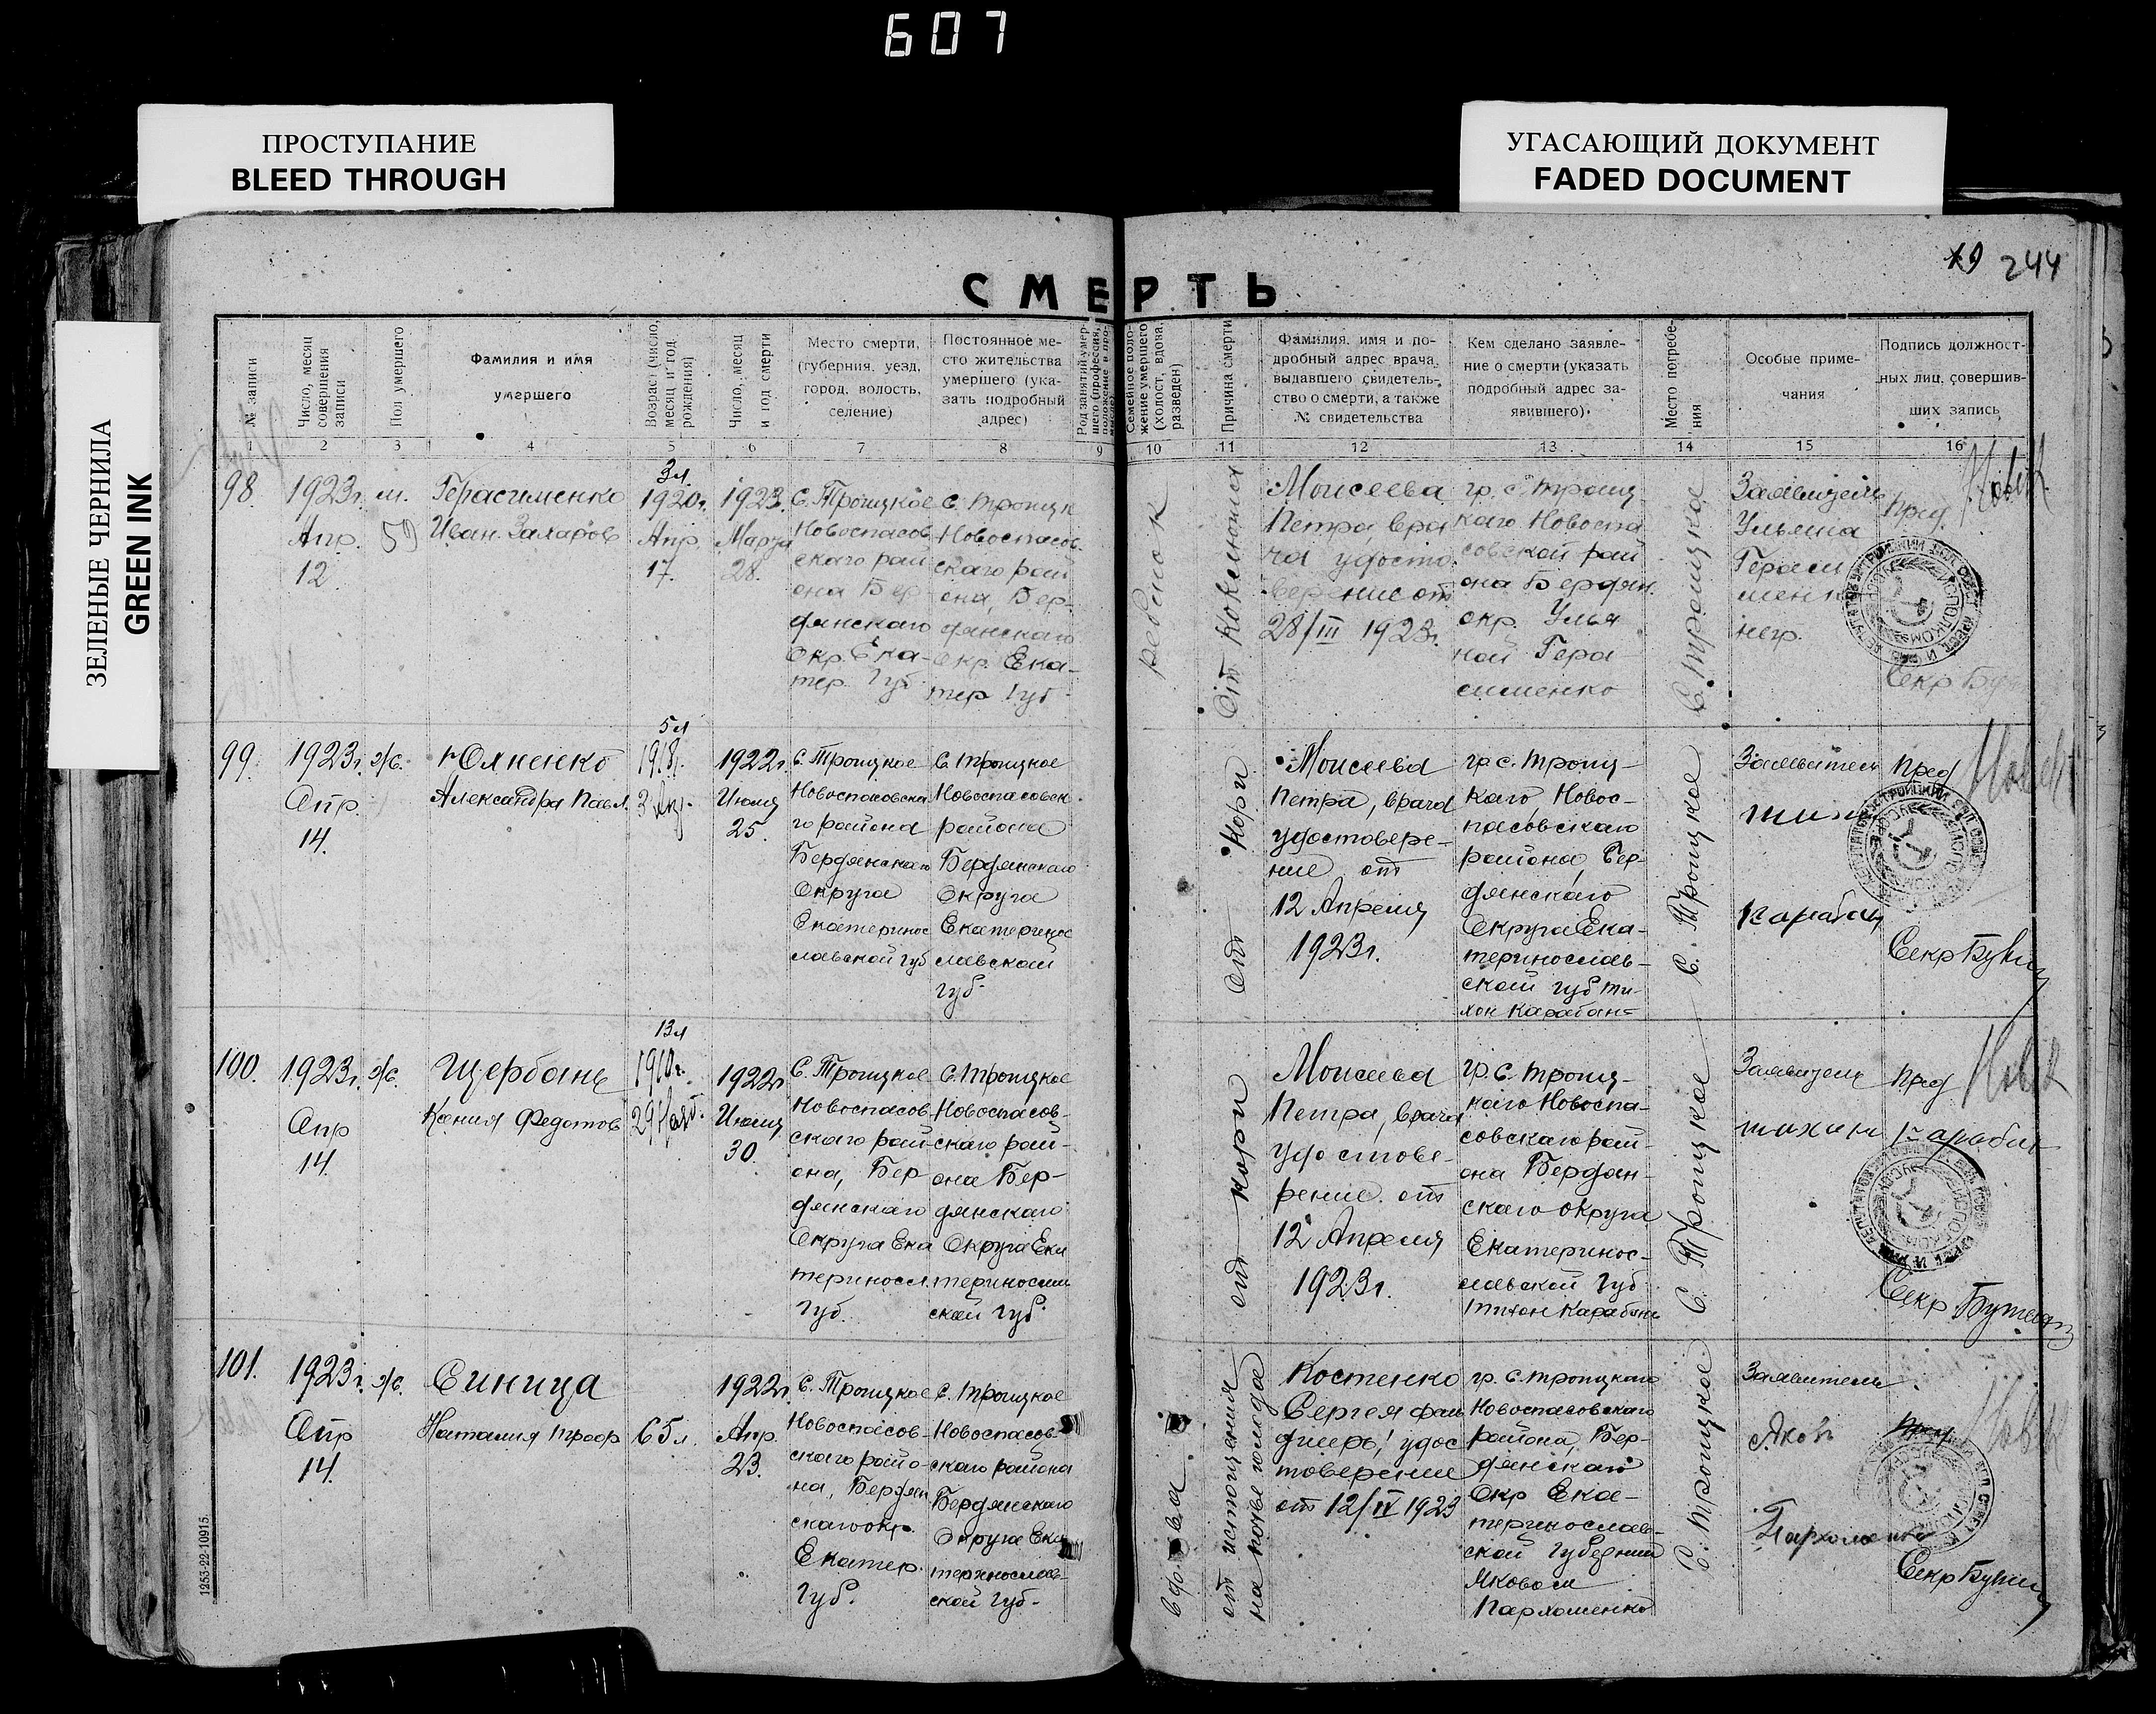 607
ПРОСТУПАНИЕ
BLEED THROUGH
УГАСАЮЩИЙ ДОКУМЕНТ
FADED DOCUMENT
ЗЕЛЕНЫЕ ЧЕРНИЛА
GREEN INK
19 244
СМЕРТЬ
№ записи
Число, месяц
совершения
записи
Пол умершего
Фамилия и имя
умершего
Возраст (число,
месяц и год
рождения)
Число, месяц
и год смерти
Место смерти,
(губерния, уезд,
город, волость,
селение)
Постоянное ме-
сто жительства
умершего (ука-
зать подробный
адрес)
Род занятий умер-
шего (профессия,
положение в про-
Семейное поло-
жение умершего
(холост, вдова,
разведен)
Причина смерти
Фамилия, имя и по-
дробный адрес врача,
выдавшего свидетель-
ство о смерти, а также
№ свидетельства
Кем сделано заявле-
ние о смерти (указать
подробный адрес за-
явившего)
Место погребе-
ния
Особые приме-
чания
Подпись должност-
ных лиц, совершив-
ших запись
1 2 3 4 5 6 7 8 9 10 11 12 13 14 15 16
98
1923г.
Апр.
12
м.
59
Герасименко
Иван Захаров
3л
1920г.
Апр.
17.
1923.
Марта
28.
С. Троицкое
Новоспасов
скаго рай
она Бер
дянскаго
Окр. Ека-
тер. Губ
С. Троицк
Новоспасов.
скаго рай
она, Бер-
дянскаго
Окр. Ека-
тер Губ
ребенок
От коклюша
Моисеева
Петра, вра
ча удосто
верение от
28/III 1923г.
гр. с. Троиц-
каго Новоспа
совской рай
она Бердян.
окр. Улья
ной Гера
сименко
С. Троицкое
Заявитель
Ульяна
Гераси
менко
негр.
Пред.
Секр
99.
1923г.
Апр.
14.
ж.
Юхненко
Александра Павл.
5л
1918г.
1922г.
Июля
25.
С. Троицкое
Новоспасовска
го района
Бердянскаго
Округа
Екатеринос
лавской губ
С. Троицкое
Новоспасовск.
района
Бердянскаго
Округа
Екатеринос
лавской
губ-
От Кори
Моисеева
Петра, врача
удостовере-
ние от
12 Апреля
1923г.
гр. с. Троиц-
каго, Новос-
пасовскаго
района, Бер-
дянскаго
Округа Ека-
теринослав-
ской губ Ти-
хон Карабан-
С. Троицкое
Заявитель
Пред
Секр
100.
1923г.
Апр
14.
ж.
Щербань
Ксения Федотов
13л
1910г.
1922г
Июля
30.
С. Троицкое
Новоспасов
скаго рай-
она, Бер
дянскаго
Округа Ека
теринославл
Губ.
С. Троицкое
Новоспасов-
скаго рай-
она Бер-
дянскаго
Округа Ека
теринослав
ской Губ.
от кори
Моисеева
Петра, врача
удостове-
рение от
12 Апреля
1923г.
гр. с. Троиц-
каго Новоспа-
совскаго рай-
она Бердян-
скаго округа
Екатеринос-
лавской Губ
Тихон Карабань
С. Троицкое
Заявитель
Тихон Карабан
Пред
Секр
101.
1923г.
Апр
14.
ж.
Синица
Наталия Троф
65л.
1922г.
Апр.
23.
С. Троицкое
Новоспасов-
скаго райо-
на, Бердян
скаго окр.
Екатер.
Губ.
С. Троицкое
Новоспасов-
скаго района
Бердянскаго
Округа Ека
теринослав-
ской Губ-
от истощения
на почве голода
Костенко
Сергея фель
дшера, удос
товерение
от 12/IV 1923
гр. С. Троицкаго
Новоспасовскаго
района, Бер-
дянскаго
Окр Ека-
теринослав-
ской Губернии
Яковом
Пархоменко
С. Троицкое
Заявитель
Яков
Пархоменко
Секр
1253-22-10915.